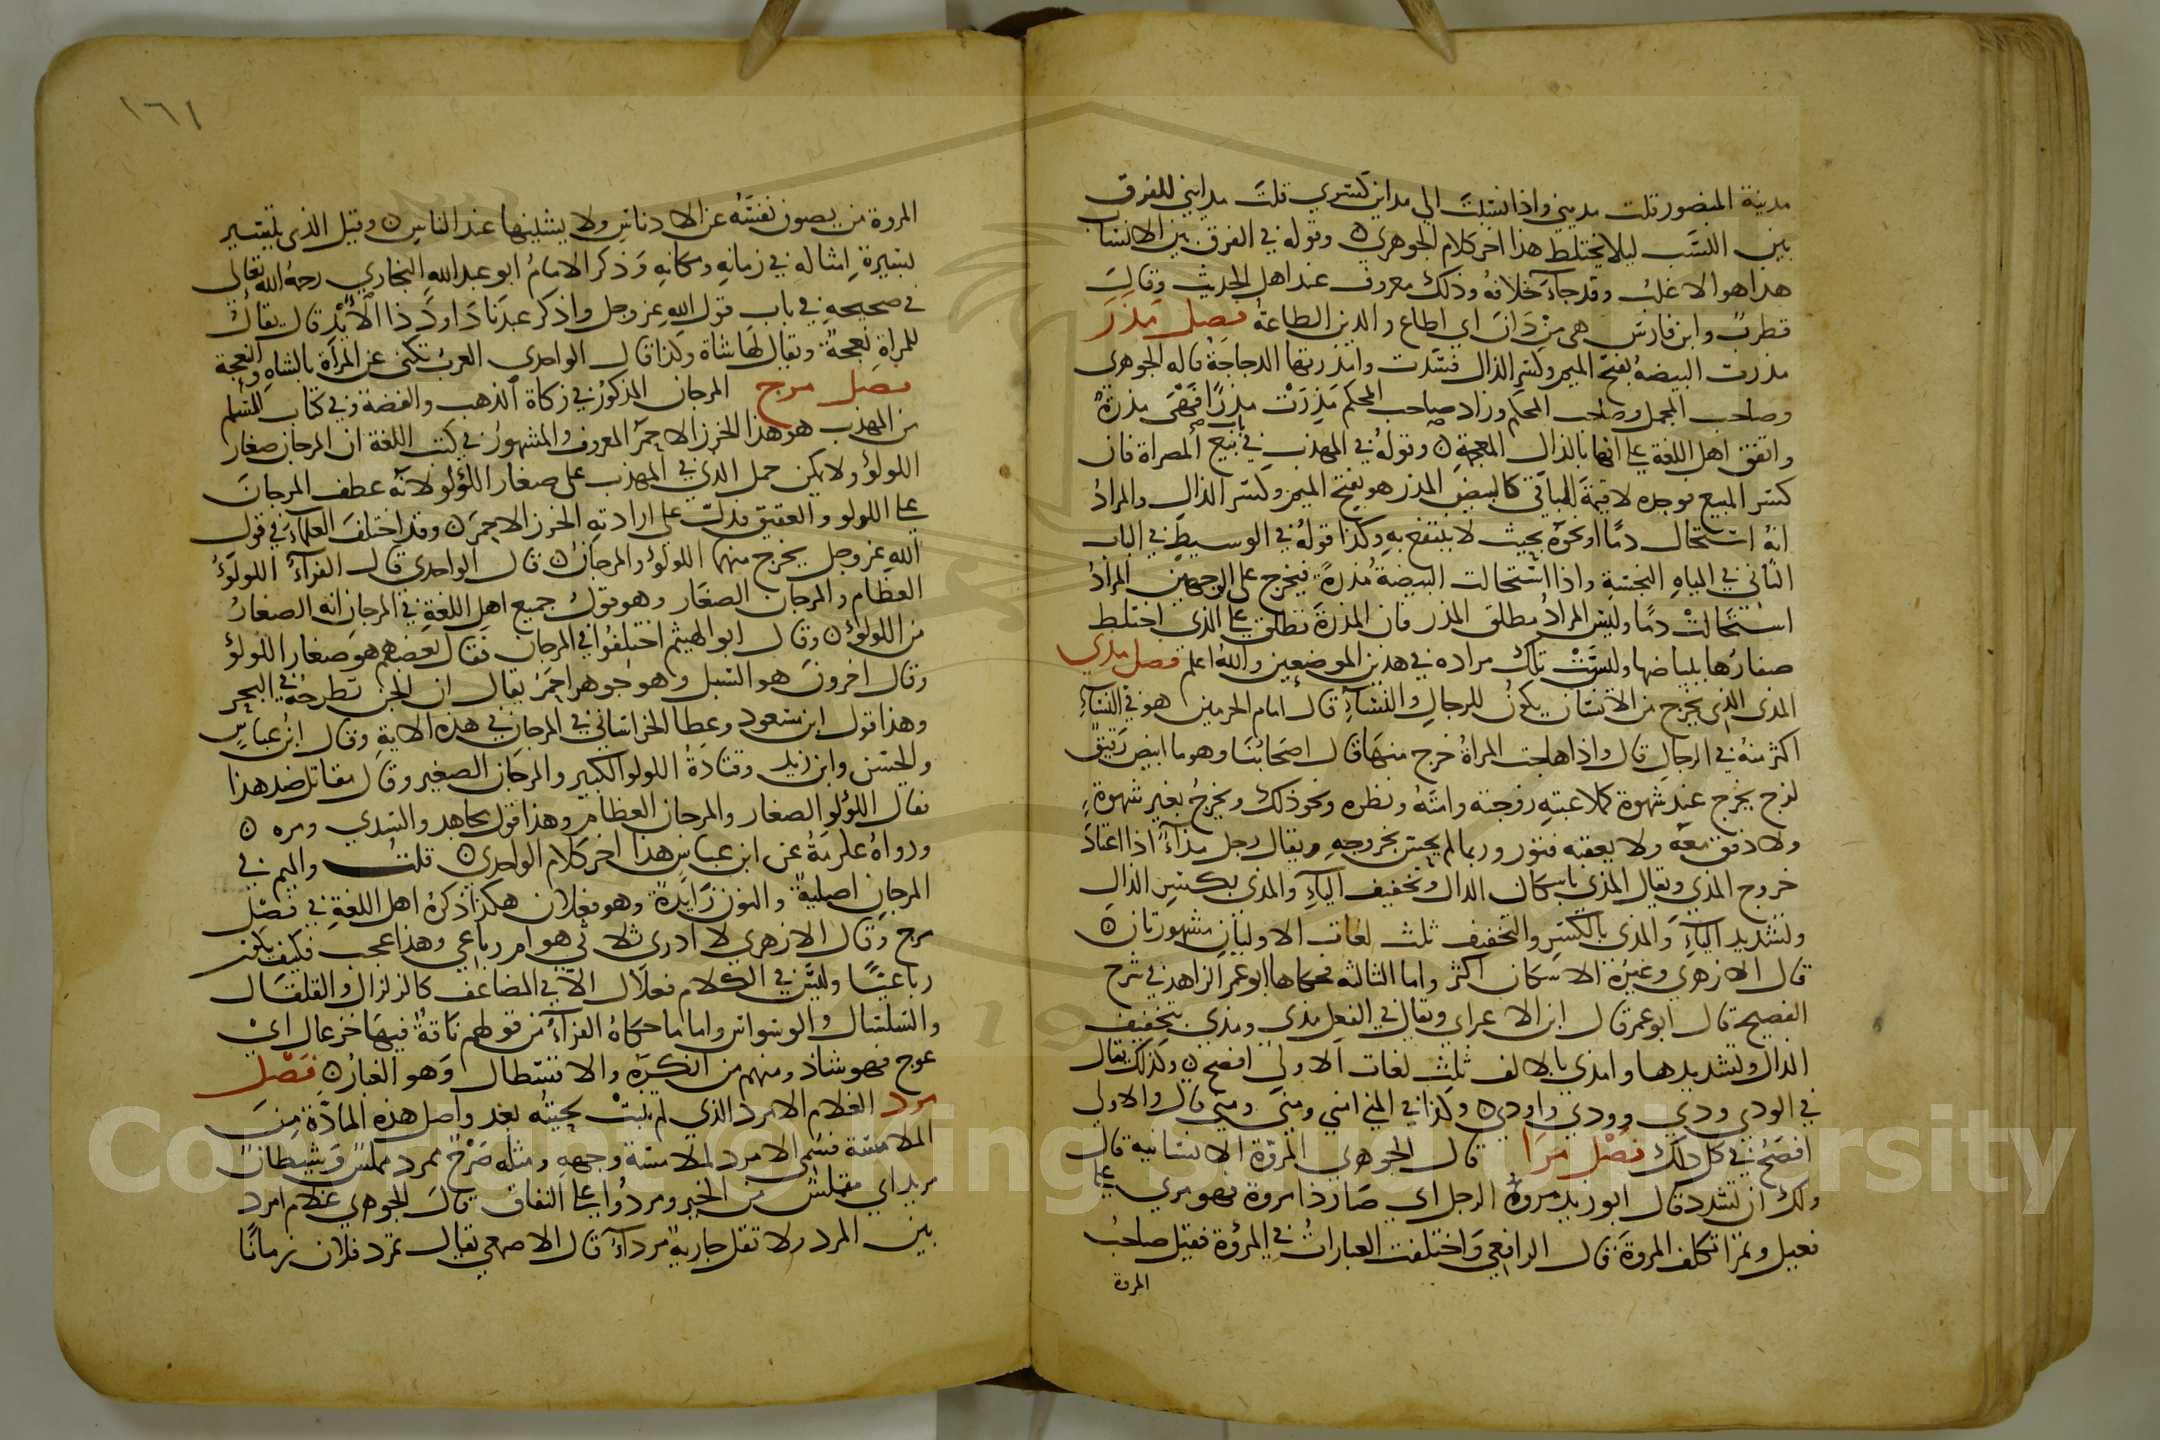 مدينة المنصور قلت مديني واذا نسبت الي مداين كسري قلت مدايني للفرق
بين النسب ليلا يختلط هذا اخر كلام الجوهري ۞ وقوله في الفرق بين الانساب
هذا هو الاغلب وقد جآء خلافه وذلك معروف عند اهل الحديث وقال
قطرب وابن فارس هي من دان اي اطاع والدين الطاعة فصل مذر
مذرت البيضة بفتح الميم وكسر الذال فسدت وامذرتها الدجاجة قاله الجوهري
وصاحب المجمل وصاحب المحكم وزاد صاحب المحكم مذرت مذرا فهي مذرة
واتفق اهل اللغة على انها بالذال المعجمة ۞ وقوله في المهذب في باب بيع المصراة فان
كسر المبيع فوجده لا قيمة للباقي كالبيض المذر هو بفتح الميم وكسر الذال والمراد
انه استحال دما او نحوه بحيث لا ينتفع به وكذا قوله في الوسيط في الباب
الثاني في المياه النجسة واذا استحالت البيضة مذرة فيخرج على الوجهين المراد
استحالت دما وليس المراد مطلق المذر فان المذرة تطلق على الذي اختلط
صفارها ببياضها وليست تلك مراده في هذين الموضعين والله اعلم فصل مذي
المذي الذي يخرج من الانسان يكون للرجال والنسآء قال امام الحرمين هو في النسآء
اكثر منه في الرجال قال واذا هاجت المراة خرج منها قال اصحابنا وهو ما ابيض رقيق
لزج يخرج عند شهوة كملاعبته زوجته وامته ونظره ونحو ذلك ويخرج بغير شهوة
ولا دفق معه ولا يعقبه فتور وربما لم يحس بخروجه ويقال رجل مذآء اذا اعتاد
خروج المذي ويقال المذي باسكان الذال وتخفيف اليآء والمذي بكسر الذال
وتشديد اليآء والمذي بالكسر والتخفيف ثلث لغات الاوليان مشهورتان ۞
قال الازهري وغيره الاسكان اكثر واما الثالثه فحكاها ابو عمر الزاهد في شرح
الفصيح قال ابو عمر قال ابن الاعرابي ويقال في الفعل مذي ومذي بتخفيف
الذال وتشديدها وامذي بالالف ثلث لغات الاولي افصح ۞ وكذلك يقال
في الودي ودي وودي واودي ۞ وكذا في المني امني ومني ومني قال والاولي
افصح في كل ذلك فصل مرا قال الجوهري المروة الانسانية قال
ولك ان تشدد قال ابو زيد مروء الرجل اي صار ذا مروة فهو مري على
فعيل وتمرا تكلف المروة قال الرافعي واختلفت العبارات في المروة فقيل صاحب
المروة
١٦١
المروة من يصون نفسه عن الادناس ولا يشينها عند الناس ۞ وقيل الذي يسير
بسيرة امثاله في زمانه ومكانه وذكر الامام ابو عبد الله البخاري رحمه الله تعالى
في صحيحه في باب قول الله عز وجل واذكر عبدنا داود ذا الايد قال يقال
للمراة نعجة ويقال لها شاة وكذا قال الواحدي العرب تكني عن المراة بالشاة والنعجة
فصل مرج المرجان المذكور في زكاة الذهب والفضة وفي كتاب السلم
من المهذب هو هذا الخرز الاحمر المعروف والمشهور في كتب اللغة ان المرجان صغار
اللولؤ ولا يمكن حمل الذي في المهذب على صغار اللؤلو لانه عطف المرجان
على اللولو والعقيق فدل على ارادته الخرز الاحمر ۞ وقد اختلف العلمآء في قول
الله عز وجل يخرج منهما اللولؤ والمرجان ۞ قال الواحدي قال الفرآء اللولؤ
العظام والمرجان الصغار وهو قول جميع اهل اللغة في المرجان انه الصغار
من اللولؤ ۞ وقال ابو الهيثم اختلفوا في المرجان فقال بعضهم هو صغار اللولؤ
وقال اخرون هو البسذ وهو جوهر احمر يقال ان الجن تطرحه في البحر
وهذا قول ابن مسعود وعطا الخراساني في المرجان في هذه الاية وقال ابن عباس
والحسن وابن زيد وقتادة اللولو الكبير والمرجان الصغير وقال مقاتل ضد هذا
فقال اللؤلو الصغار والمرجان العظام وهذا قول مجاهد والسدي ومره ۞
ورواه عكرمة عن ابن عباس هذا اخر كلام الواحدي ۞ قلت والميم في
المرجان اصلية والنون زايدة وهو فعلان هكذا ذكره اهل اللغة في فصل
مرج وقال الازهري لا ادري ثلاثي هو ام رباعي وهذا عجب فكيف يكون
رباعيا وليس في الكلام فعلال الا في المضاعف كالزلزال والقلقال
والسلسال والوسواس واما ما حكاه الفرآء من قولهم ناقة فيها خزعال اي
عوج فهو شاذ ومنهم من انكره والاقسطال وهو الغبار ۞ فصل
مرد الغلام الامرد الذي لم تنبت لحيته بعد واصل هذه المادة من
الملاسة فسمي الامرد لملاسة وجهه ومثله صرح ممرد مملس وشيطان
مريد اي متملس من الخير ومردوا على النفاق قال الجوهري غلام امرد
بين المرد ولا تقل جارية مردآء قال الاصمعي يقال تمرد فلان زمانا